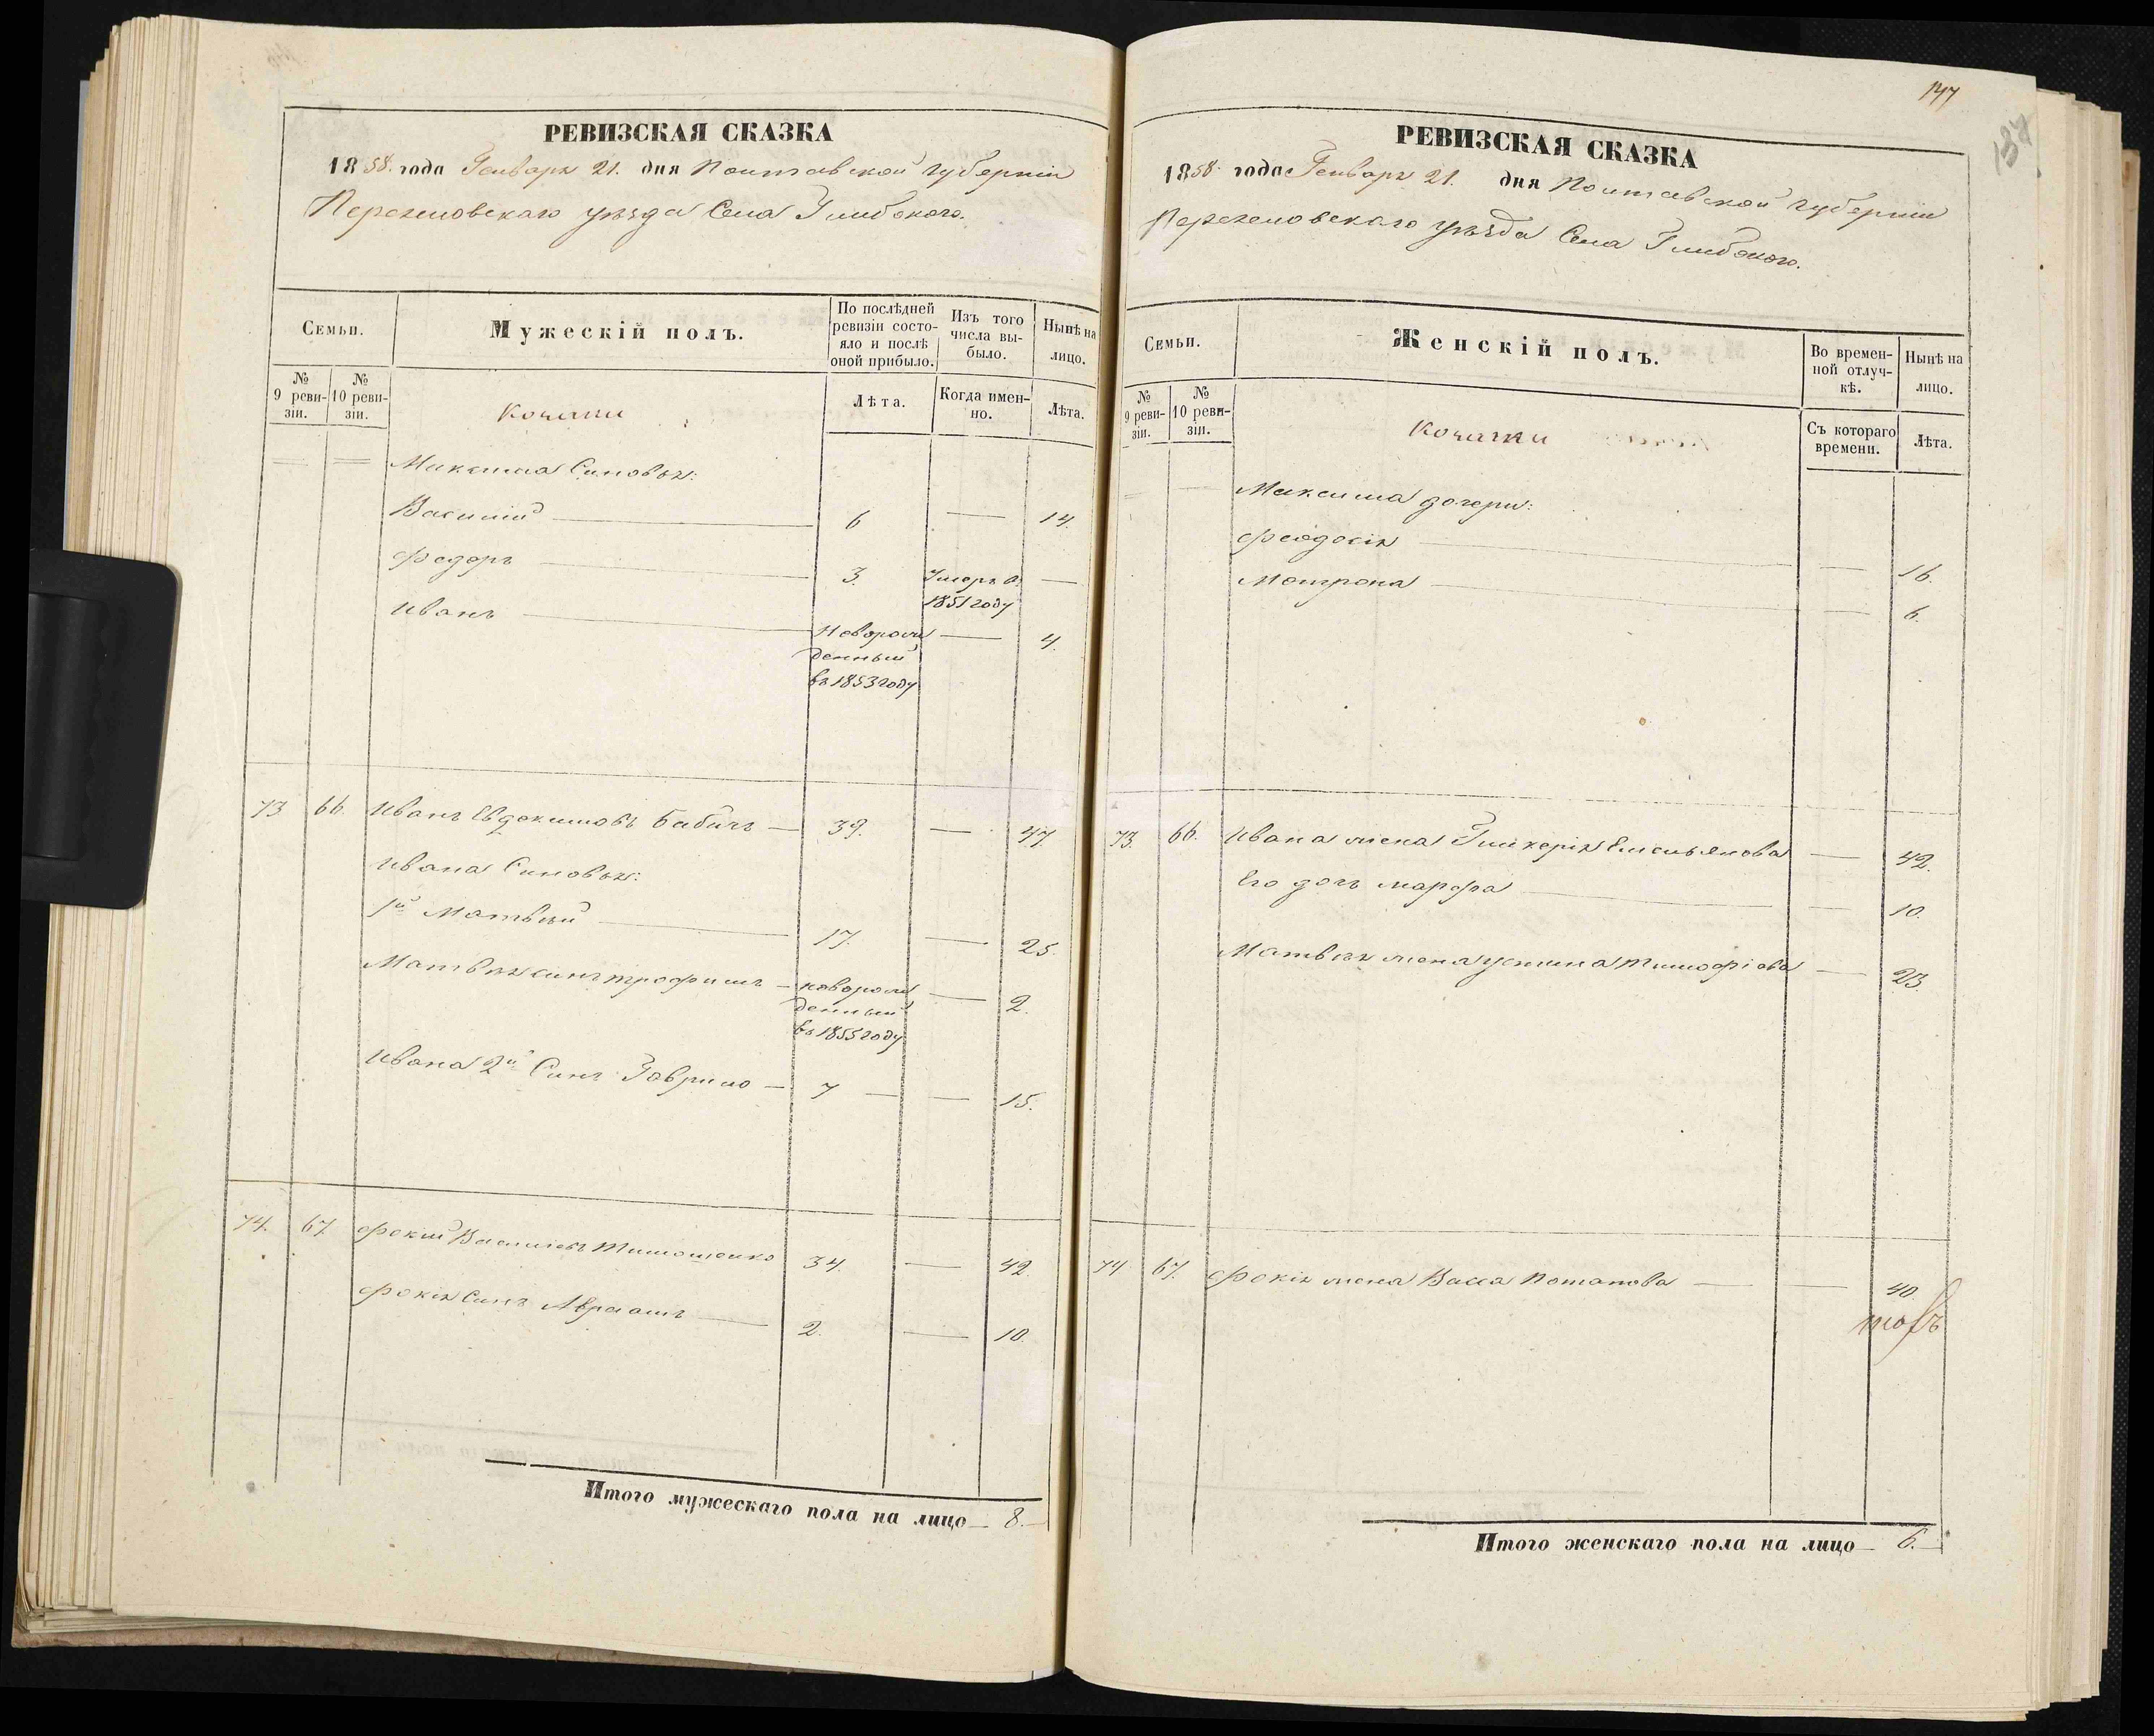 147
137
РЕВИЗСКАЯ СКАЗКА
1858. года Генваря 21. дня Полтавской губерніи
Переяславскаго уѣзда Села Глибокого.
Семьи.
Мужескій полъ.
По послѣдней ревизіи состояло и послѣ оной прибыло.
Изъ того числа выбыло.
Нынѣ на лицо.
№ 9 ревизіи.
№ 10 ревизіи.
Козаки
Лѣта.
Когда именно.
Лѣта.
Максима Синовья:
Василій — 6 — 14.
Федоръ — 3. Умеръ в —
1851 году
Иванъ —Новорож — 4.
денный
въ 1853 году
73 66. Иванъ Евдокимовъ Бабичъ — 39. — 47
Ивана Синовья:
1й Матвѣй — 17. — 25.
Матвѣя синъ Трофимъ — новорож — 2.
денный
въ 1855 году
Ивана 2й Синъ Гаврило — 7 — — 15.
74. 67. Фокій Василіевъ Тимошенко 34. — 42
Фокія Синъ Авраамъ — 2. — 10.
Итого мужескаго пола на лицо — 8. —
РЕВИЗСКАЯ СКАЗКА
1858. года Генваря 21. дня Полтавской губерніи
Переяславскаго уѣзда Села Глибокого.
Семьи.
Женскій полъ.
Во временной отлучкѣ.
Нынѣ на лицо.
№ 9 ревизіи.
№ 10 ревизіи.
Козачки
Съ котораго времени.
Лѣта.
Максима дочери:
Феодосія — — 16.
Мотрона — — 6.
73. 66. Ивана жена Гликерія Емельянова — 42.
Его дочь Марфа — — 10.
Матвѣя жена Устина Тимофіова — 23.
74 67. Фокія жена Васса Потапова — — 40
Итого женскаго пола на лицо — 6. —